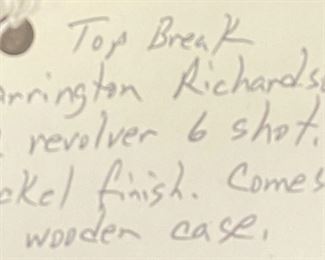 Top Break
arrington Richards
revolver 6 shot.
ckel finish. Comes
wooden case.